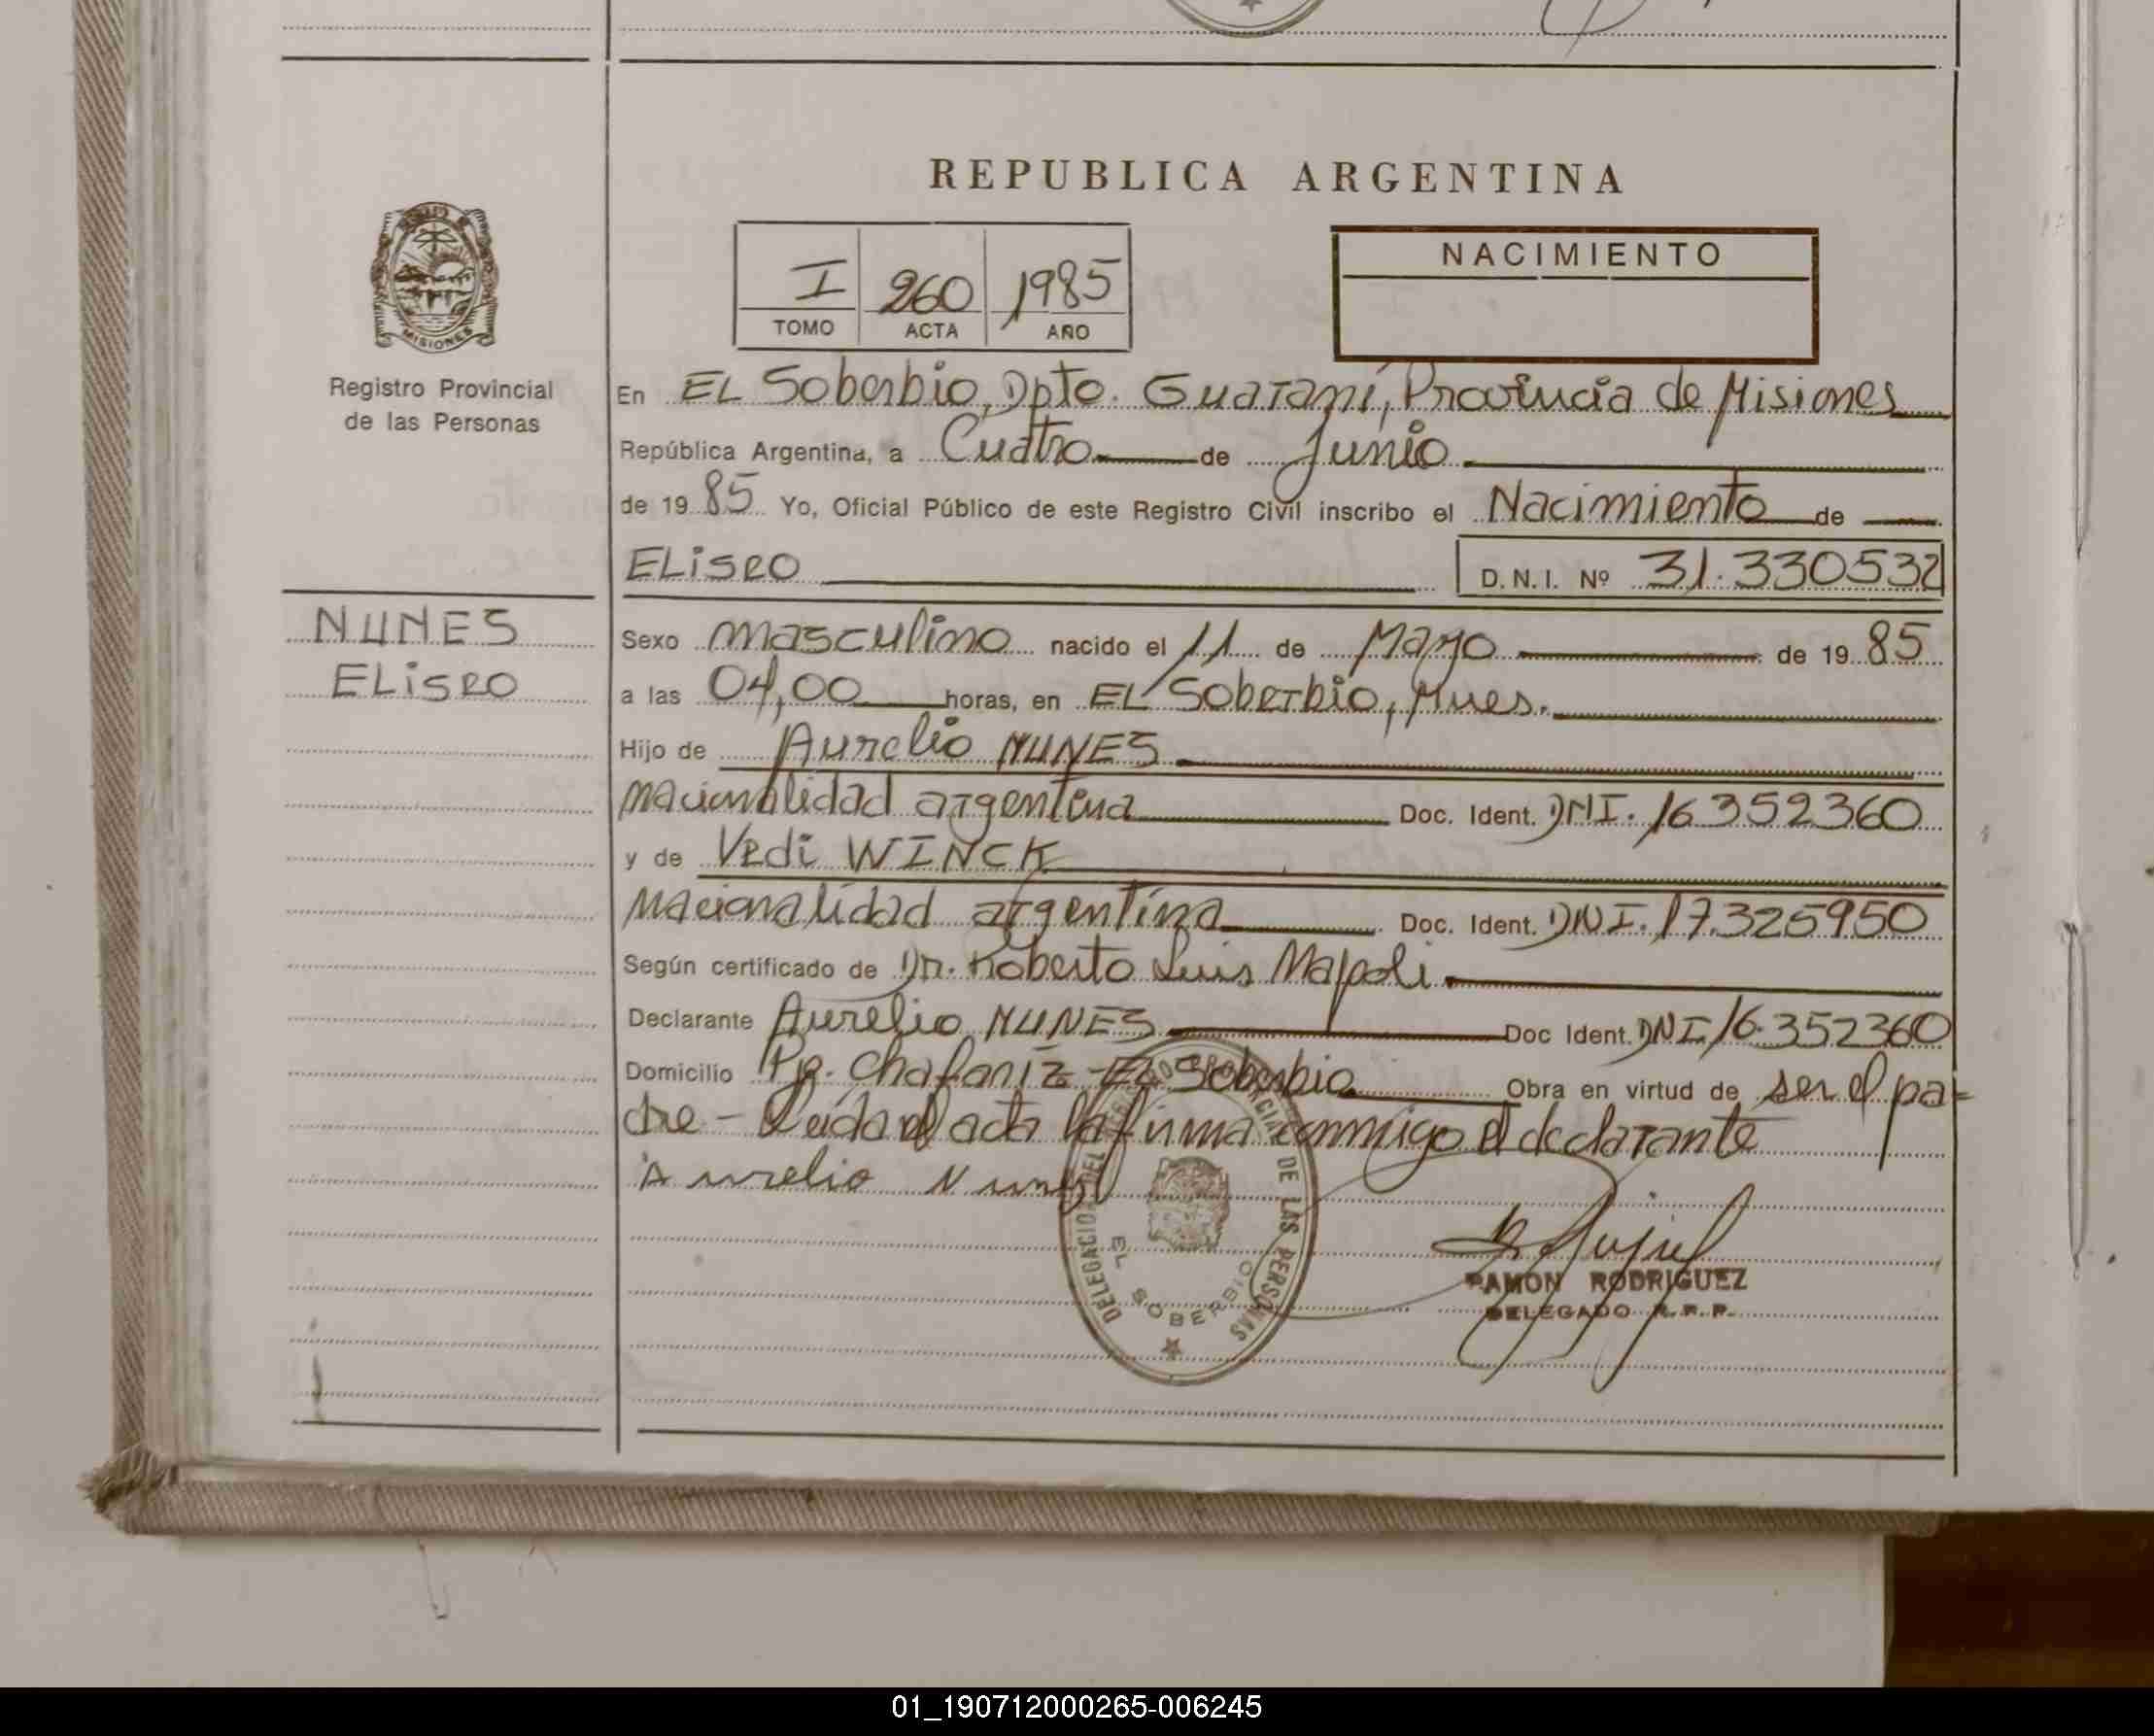 REPUBLICA ARGENTINA
NACIMIENTO
I 260 1985
TOMO ACTA AÑO
MISIONES
Registro Provincial
de las Personas
NUNES
ELISEO
En EL Soberbio, Dpto. Guaraní, Provincia de Misiones
República Argentina, a Cuatro de Junio
de 1985 Yo, Oficial Público de este Registro Civil inscribo el Nacimiento de
ELISEO D.N.I. Nº 31.330532
Sexo masculino nacido el 11 de Mayo de 1985
a las 04,00 horas, en EL Soberbio, Mnes.
Hijo de Aurelio NUNES
nacionalidad argentina Doc. Ident. DNI. 16352360
y de Vedi WINCK
nacionalidad argentina Doc. Ident. DNI. 17.325950
Según certificado de Dr. Roberto Luis Napoli
Declarante Aurelio NUNES Doc Ident. DNI 16.352360
Domicilio EL Soberbio Obra en virtud de ser el pa=
dre - Leida el acta la firma conmigo el declarante
Aurelio Nunes
DELEGACION DEL REGISTRO PROVINCIAL DE LAS PERSONAS
EL SOBERBIO
RAMON RODRIGUEZ
DELEGADO R.P.P.
01_190712000265-006245